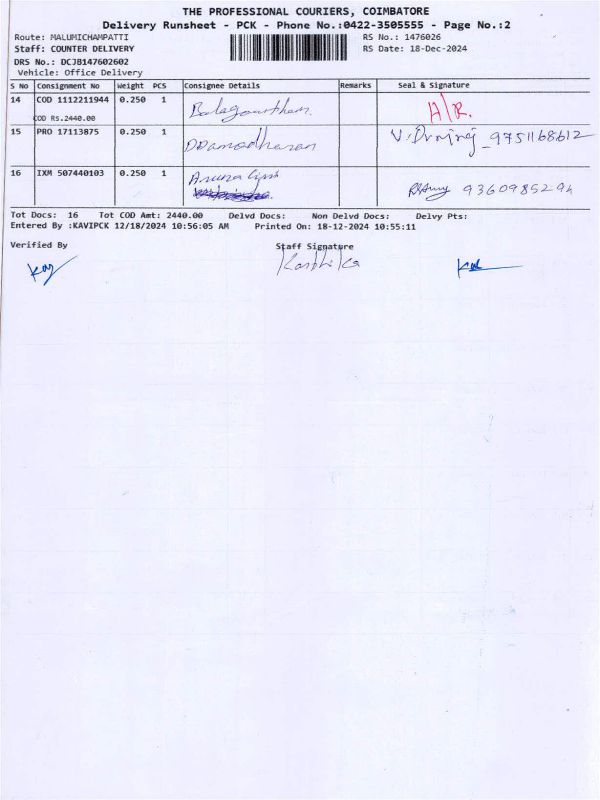 THE PROFESSIONAL COURIERS, COIMBATORE
Delivery Runsheet - PCK - Phone No.:0422-3505555 - Page No.:2
Route: MALUMICHAMPATTI RS No.: 1476026
Staff: COUNTER DELIVERY RS Date: 18-Dec-2024
DRS No.: DCJB147602602
Vehicle: Office Delivery
S No Consignment No Weight PCS Consignee Details Remarks Seal & Signature
14 COD 1112211944 0.250 1 Balagowtham. A/R.
COD Rs.2440.00
15 PRO 17113875 0.250 1 DDamodharan 9751168612
16 IXM 507440103 0.250 1 Aruna 9360985294
Tot Docs: 16 Tot COD Amt: 2440.00 Delvd Docs: Non Delvd Docs: Delvy Pts:
Entered By :KAVIPCK 12/18/2024 10:56:05 AM Printed On: 18-12-2024 10:55:11
Verified By Staff Signature
Karthika